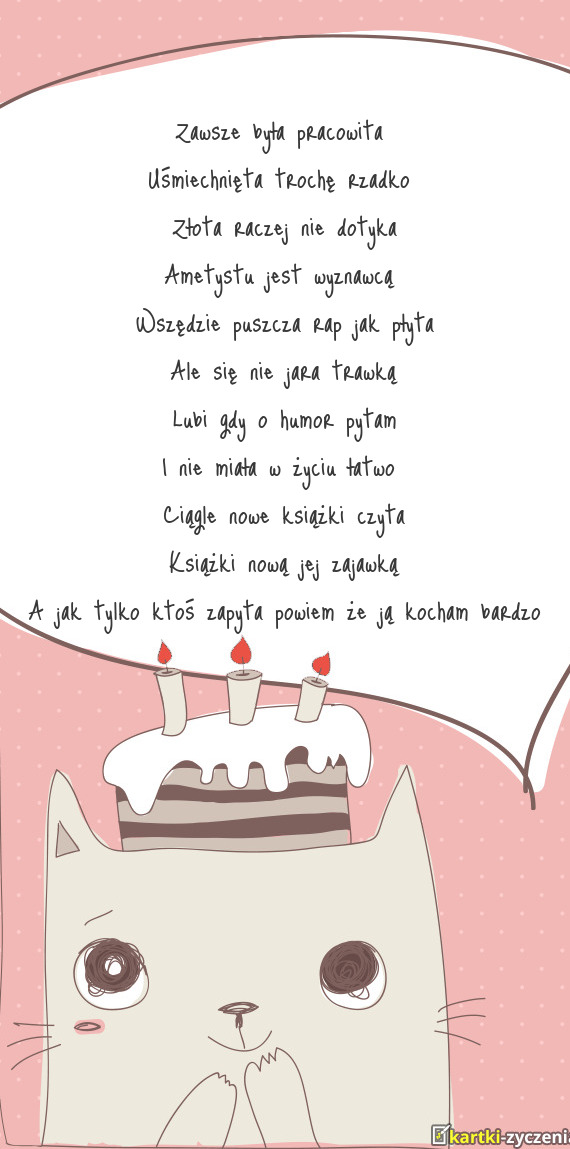 Zawsze była pracowita
Uśmiechnięta trochę rzadko
Złota raczej nie dotyka
Ametystu jest wyznawcą
Wszędzie puszcza rap jak płyta
Ale się nie jara trawką
Lubi gdy o humor pytam
I nie miała w życiu łatwo
Ciągle nowe książki czyta
Książki nową jej zajawką
A jak tylko ktoś zapyta powiem że ją kocham bardzo
kartki-zyczenia